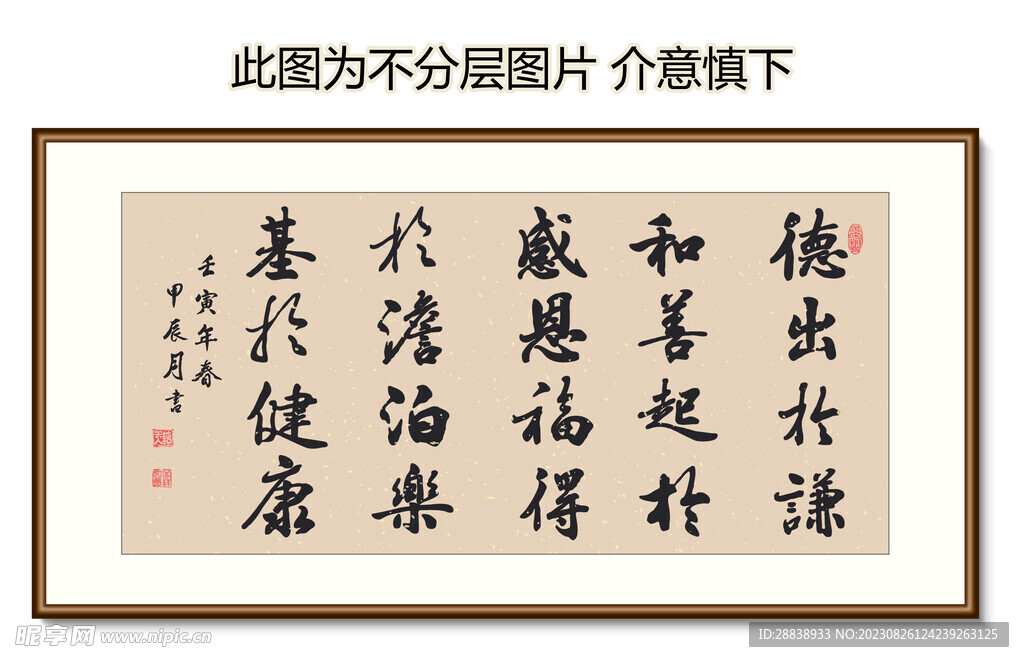 此图为不分层图片 介意慎下
德出於谦
和善起於
感恩福得
於澹泊樂
基於健康
壬寅年春
甲辰月书
昵享网 www.nipic.cn
ID:28838933 NO:20230826124239263125